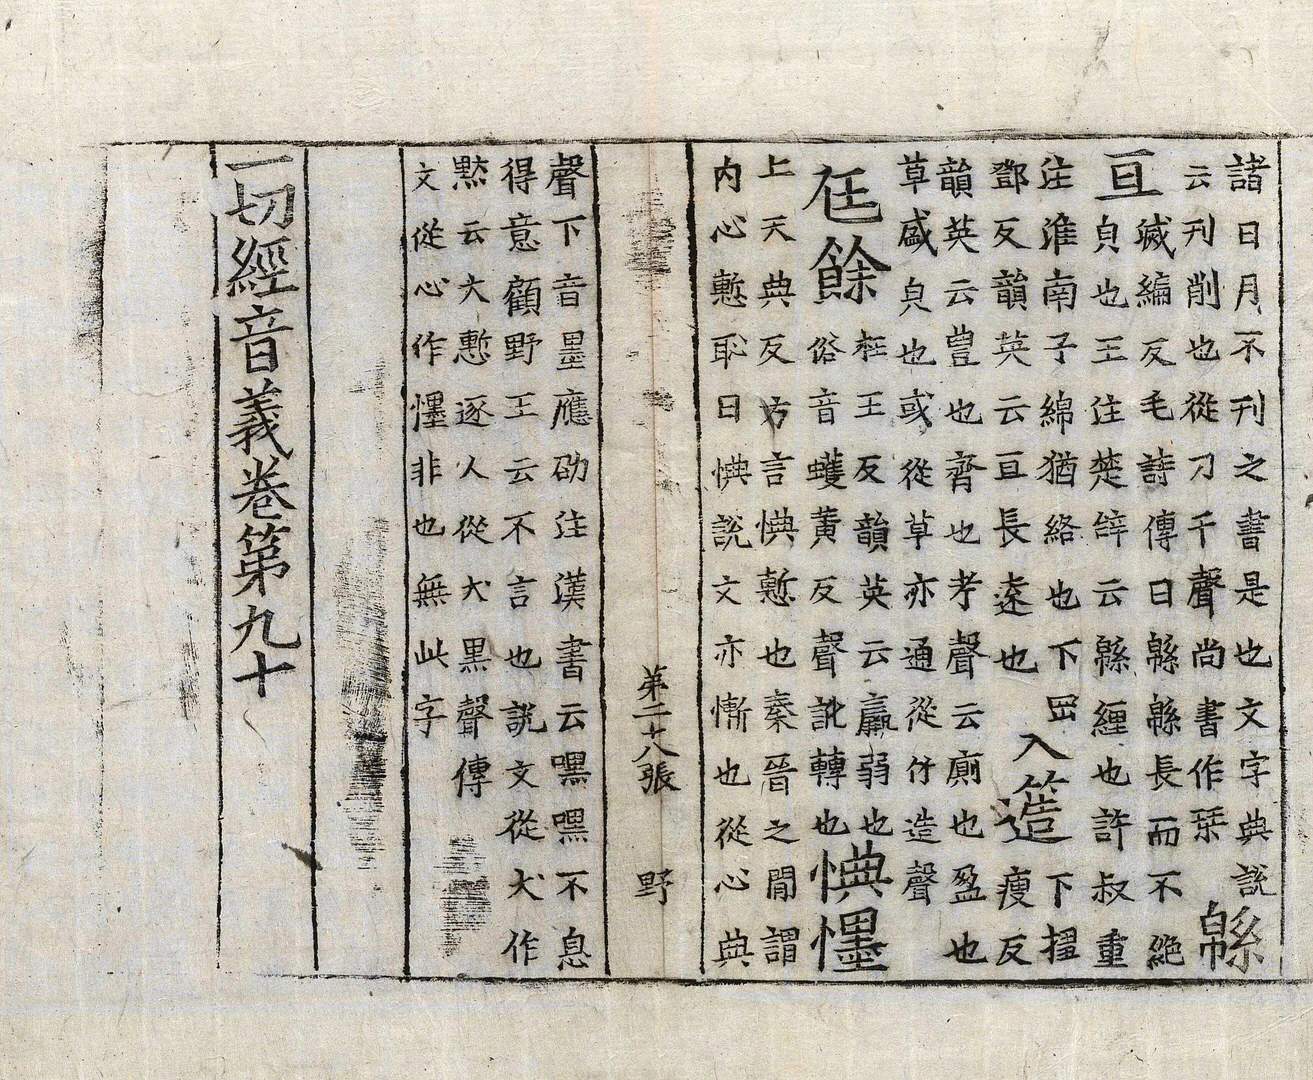 諸日月不刊之書是也文字典說
云刊削也從刀干聲尚書作栞
緜
亘
滅編反毛詩傳曰緜緜長而不絕
皃也王注楚辞云緜纏也許叔重
注淮南子綿猶絡也下
鄧反韻英云亘長遠也
入簉
下搊
瘦反
韻英云豊也齊也考聲云廁也盈也
草盛皃也或從草亦通從竹造聲
尫餘
枉王反韻英云羸弱也
俗音蠖黄反聲訛轉也
㥏㦄
上天典反方言㥏慙也秦晉之閒謂
內心慙恥曰㥏說文亦慚也從心典
第二十八張 野
聲下音墨應劭注漢書云嘿嘿不息
得意顧野王云不言也說文從犬作
默云犬慙逐人從犬黑聲傳
文從心作㦄非也無此字
一切經音義卷第九十